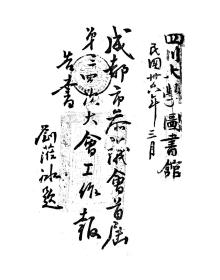 四川大學圖書館
民國卅六年三月
成都市參議會首屆
第三四次大會工作報
告書
劉蒞冰題